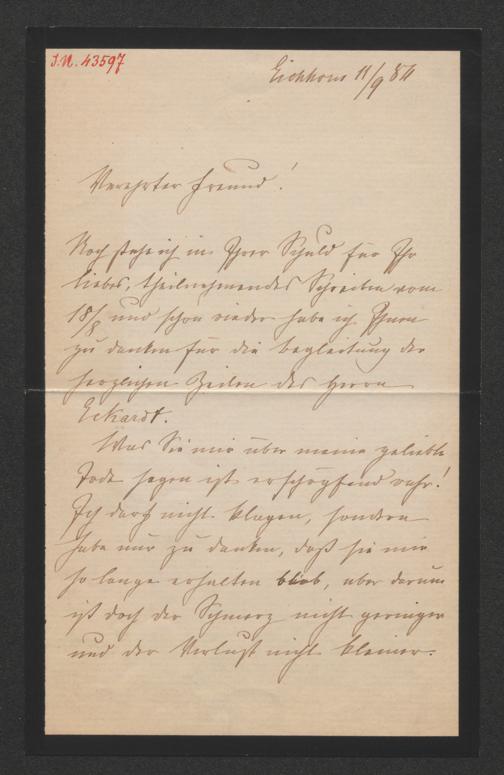 J.N. 43597
Eichhorn 11/9 84
Verehrter Freund!
Noch stehe ich in Ihrer Schuld für Ihr
liebes, theilnehmendes Schreiben vom
18/8 und schon wieder habe ich Ihnen
zu danken für die Begleitung der
herzlichen Zeilen des Herrn
Eckardt.
Was Sie mir über meine geliebte
Tode sagen ist erschöpfend wahr!
Ich darf nicht klagen, sondern
habe nur zu danken, daß sie mir
so lange erhalten blieb, aber darum
ist doch der Schmerz nicht geringer
und der Verlust nicht kleiner.